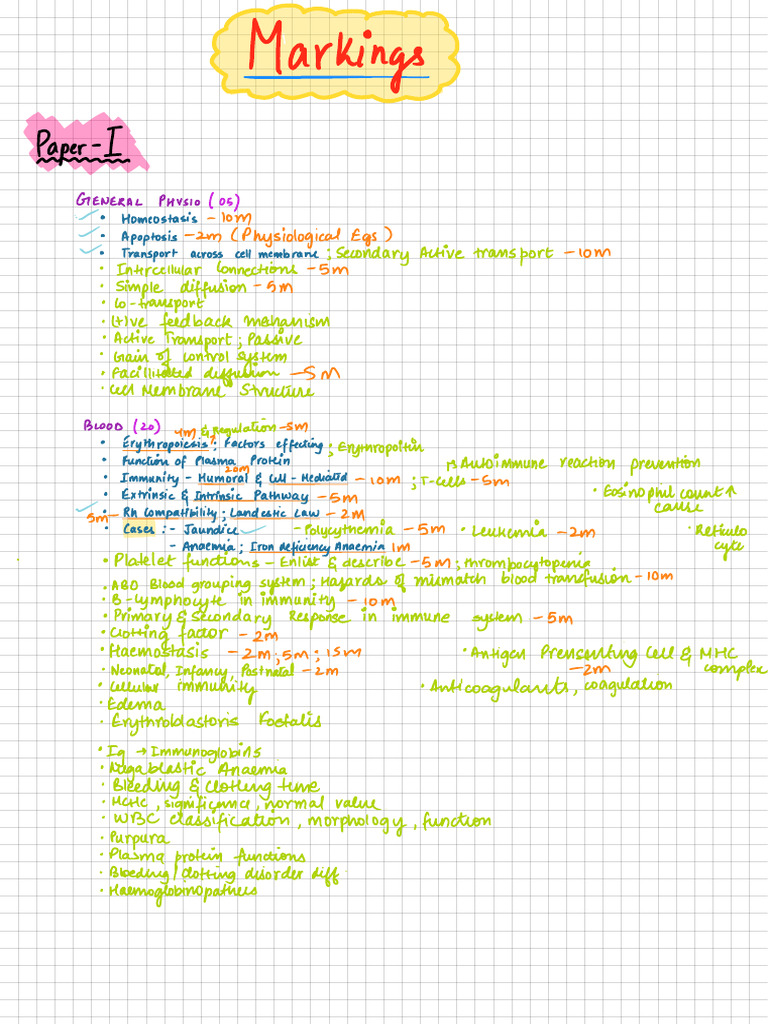 Markings
Paper-I
GENERAL PHYSIO (05)
• Homeostasis - 10m
• Apoptosis - 2m (Physiological Egs)
• Transport across cell membrane ; Secondary Active transport - 10m
• Intercellular Connections - 5m
• Simple diffusion - 5m
• Co-transport
• (+)ve feedback mehanism
• Active Transport ; Passive
• Gain of control system
• Facilitated diffusion - 5M
• Cell Membrane Structure
BLOOD (20)
4m & Regulation - 5m
• Erythropoiesis ; Factors effecting ; Erythropoitin
• Function of Plasma Protein
↳ Autoimmune reaction prevention
20m
• Immunity - Humoral & Cell-Mediated - 10m ; T-cells - 5m
• Extrinsic & Intrinsic Pathway - 5m
• Eosinophil count ↑ cause
5m - • Rh Compatibility ; Landestic Law - 2m
• Cases :- Jaundice
- Polycythemia - 5m • Leukemia - 2m
• Reticulo cyte
- Anaemia ; Iron deficiency Anaemia 1m
• Platelet functions - Enlist & describe - 5m ; thrombocytopenia
• ABO Blood grouping system ; Hazards of mismatch blood transfusion - 10m
• B-lymphocyte in immunity - 10m
• Primary & Secondary Response in immune system - 5m
• Clotting factor - 2m
• Haemostasis - 2m ; 5m ; 15m
• Antigen Prensenting Cell & MHC complex - 2m
• Neonatal, Infancy, Postnatal - 2m
• Cellular immunity
• Anticoagulants, coagulation
• Edema
• Erythroblastoris Foetalis
• Ig → Immunoglobins
• Megablastic Anaemia
• Bleeding & Clotting time
• MCHC, significance, normal value
• WBC classification, morphology, function
• Purpura
• Plasma protein functions
• Bleeding / clotting disorder diff
• Haemoglobinopatheis